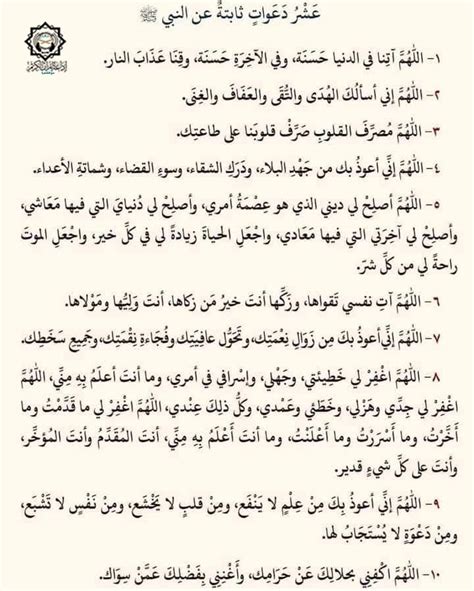 عَشْرُ دَعَواتٍ ثابتةٌ عن النبي ﷺ
١- اللّهُمَّ آتِنا في الدنيا حَسَنَة، وفي الآخِرَةِ حَسَنَة، وقِنَا عَذَابَ النار.
٢- اللّهُمَّ إني أسألُكَ الهُدَى والتُّقَى والعَفَافَ والغِنَى.
٣- اللّهُمَّ مُصرِّفَ القلوبِ صَرِّفْ قلوبَنا على طاعتِك.
٤- اللّهُمَّ إنِّي أعوذُ بك من جَهْدِ البلاء، ودَرَكِ الشقاء، وسوءِ القضاء، وشماتةِ الأعداء.
٥- اللّهُمَّ أصلِحْ لي ديني الذي هو عِصْمَةُ أمري، وأصلِحْ لي دُنيايَ التي فيها مَعَاشي،
وأصلِحْ لي آخِرَتي التي فيها مَعَادي، واجْعَلِ الحياةَ زيادةً لي في كلِّ خير، واجْعَلِ الموتَ
راحةً لي من كلِّ شرّ.
٦- اللّهُمَّ آتِ نفسي تَقواها، وزَكِّها أنتَ خيرُ مَن زكاها، أنتَ وَلِيُّها ومَوْلاها.
٧- اللّهُمَّ إنِّي أعوذُ بكَ مِن زَوَالِ نِعْمَتِك، وتَحَوُّلِ عافِيَتِك وفُجَاءةِ نِقْمَتِك، وجَميعِ سَخَطِك.
٨- اللّهُمَّ اغْفِرْ لي خَطِيئتي، وجَهْلي، وإسْرافي في أمري، وما أنتَ أعلَمُ بِهِ مِنِّي، اللّهُمَّ
اغْفِرْ لي جِدِّي وهَزْلي، وخَطَئي وعَمْدي، وكُلُّ ذلكَ عِندِي، اللّهُمَّ اغْفِرْ لي ما قَدَّمْتُ وما
أخَّرْتُ، وما أسْرَرْتُ وما أعْلَنْتُ، وما أنتَ أعْلَمُ بِهِ مِنِّي، أنتَ المُقَدِّمُ وأنتَ المُؤخِّر،
وأنتَ على كلِّ شيءٍ قدير.
٩- اللّهُمَّ إنِّي أعوذُ بِكَ مِنْ عِلْمٍ لا يَنْفَع، ومِنْ قلبٍ لا يَخْشَع، ومِنْ نَفْسٍ لا تَشْبَع،
ومِن دَعْوَةٍ لا يُسْتَجَابُ لها.
١٠- اللّهُمَّ اكْفِنِي بحلالِكَ عَنْ حَرامِك، وأغْنِنِي بِفَضْلِكَ عَمَّنْ سِوَاك.